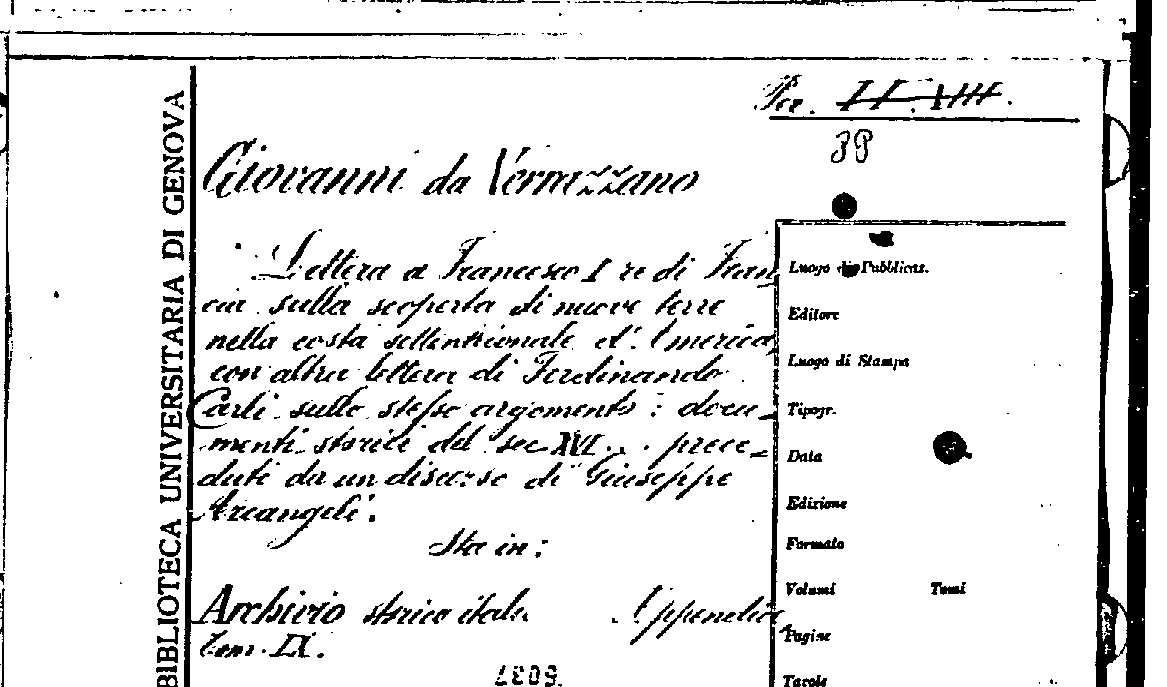 Per. II. VIII.
38
Giovanni da Verrazzano
Lettera a Francesco I re di Fran
cia sulla scoperta di nuove terre
nella costa settentrionale d'America,
con altra lettera di Ferdinando
Carli sullo stesso argomento: docu-
menti storici del sec XVI... prece-
duti da un discorso di Giuseppe
Arcangeli.
Sta in:
Archivio storico ital. Appendice
Tom. IX.
BIBLIOTECA UNIVERSITARIA DI GENOVA
Luogo di Pubblicas.
Editore
Luogo di Stampa
Tipogr.
Data
Edizione
Formato
Volumi Tomi
Pagine
Tavole